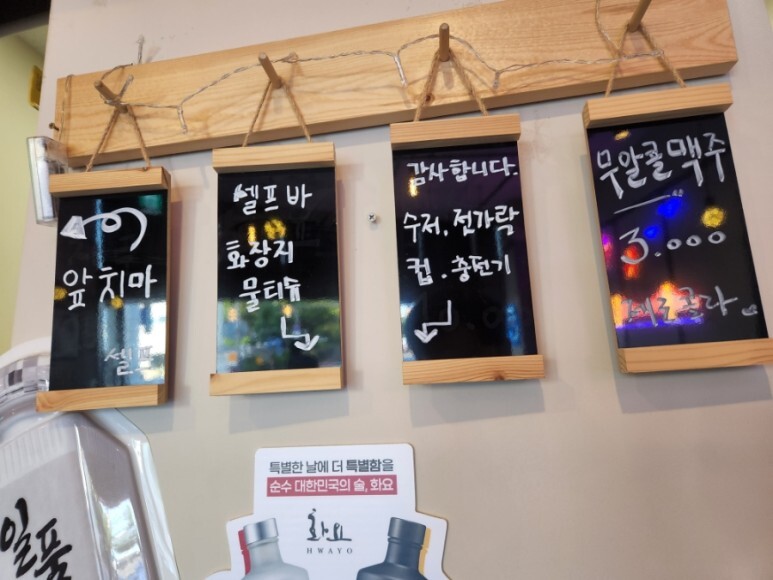 앞치마
셀프
셀프 바
화장지
물티슈
감사합니다.
수저, 젓가락
컵 . 충전기
무알콜 맥주
3.000
제로콜라
특별한 날에 더 특별함을
순수 대한민국의 술, 화요
화요
HWAYO
일품